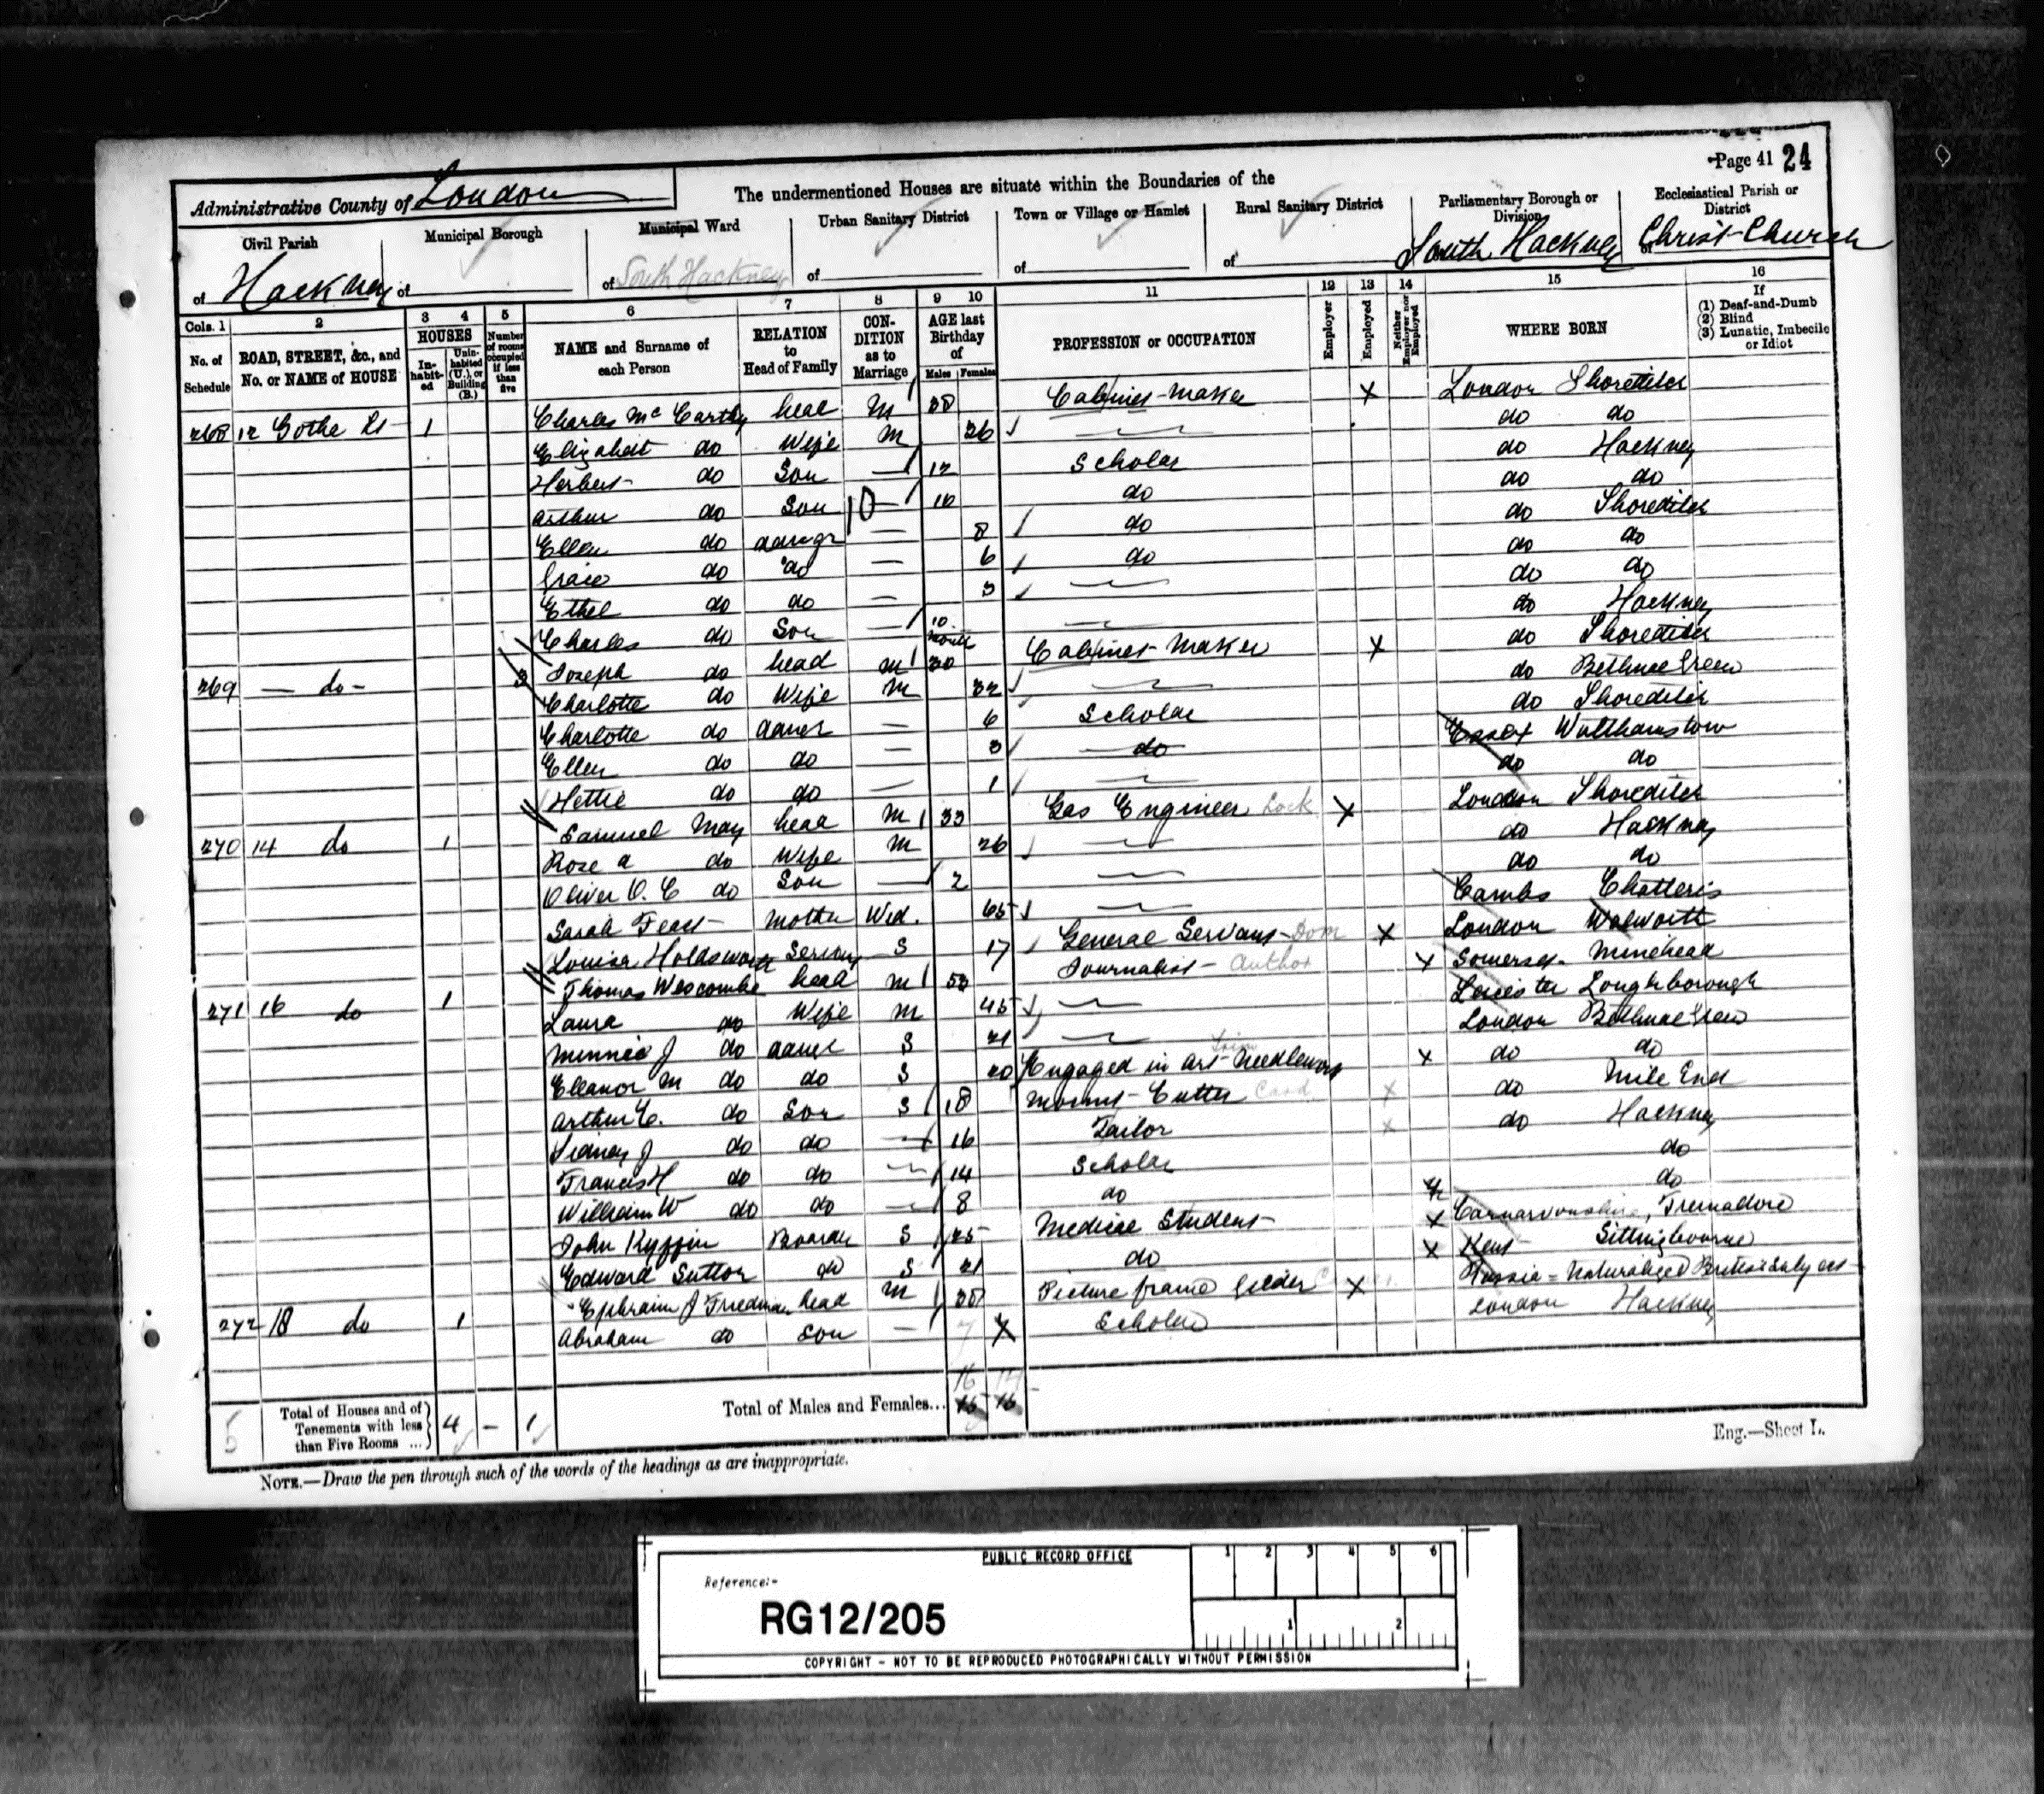 Page 41 24
Administrative County of London
The undermentioned Houses are situate within the Boundaries of the
Civil Parish of Hackney
Municipal Borough of
Municipal Ward of South Hackney
Urban Sanitary District of
Town or Village or Hamlet of
Rural Sanitary District of
Parliamentary Borough or Division of South Hackney
Ecclesiastical Parish or District of Christ Church
Cols. 1 2 3 4 5 6 7 8 9 10 11 12 13 14 15 16
No. of Schedule
ROAD, STREET, &c., and No. or NAME of HOUSE
HOUSES In-habit-ed Unin-habited (U.), or Building (B.)
Number of rooms occupied if less than five
NAME and Surname of each Person
RELATION to Head of Family
CON-DITION as to Marriage
AGE last Birthday of Males Females
PROFESSION or OCCUPATION
Employer
Employed
Neither Employer nor Employed
WHERE BORN
If (1) Deaf-and-Dumb (2) Blind (3) Lunatic, Imbecile or Idiot
268 12 Gothe 1 Charles Mc Carthy head M 38 Cabinet Maker X London Shoreditch
Elizabeth do Wife M 36 do do
Herbert do Son 12 Scholar do Hackney
Arthur do Son 10 do do do
Ellen do 8 do do Shoreditch
do do 6 do do do
Ethel do do 3 do do
Charles do Son 10 month do Hackney
269 do 3 Joseph do head M 30 Cabinet Maker X do Shoreditch
Charlotte do Wife M 32 do Bethnal Green
Charlotte do 6 Scholar do Shoreditch
Ellen do do 3 do Essex Walthamstow
Hettie do do 1 do do
270 14 do 1 Samuel May head M 33 Gas Engineer X London Shoreditch
Rose A do Wife M 26 do Hackney
Oliver O. C do Son 2 do do
Sarah Mother Wid. 65 Cambs Chatteris
Louisa Holdsworth Servant S 17 General Servant Dom X London Walworth
271 16 do 1 Thomas Wescombe head M 53 Journalist Author X Somerset Minehead
Laura do Wife M 45 Leicester Loughborough
Minnie J do S 21 London Bethnal Green
Eleanor M do do S 20 Engaged in Art Needlework X do do
Arthur C. do Son S 18 Mount Cutter Card X do Mile End
Sidney J do do 16 Tailor X do Hackney
Francis H do do 14 Scholar do
William W do do 8 do do
John Kyffin Boarder S 25 Medical Student X Carnarvonshire, Tremadoc
Edward Sutton do S 21 do X Kent Sittingbourne
272 18 do 1 Ephraim J Friedman head M 38 Picture frame Gilder X Russia = Naturalized British Subject
Abraham do Son 7 Scholar London Hackney
16 14
Total of Houses and of Tenements with less than Five Rooms ... 4 - 1
Total of Males and Females...
5
Eng.—Sheet L.
NOTE.—Draw the pen through such of the words of the headings as are inappropriate.
PUBLIC RECORD OFFICE
1 2 3 4 5 6
Reference:-
RG12/205
1 2
COPYRIGHT - NOT TO BE REPRODUCED PHOTOGRAPHICALLY WITHOUT PERMISSION